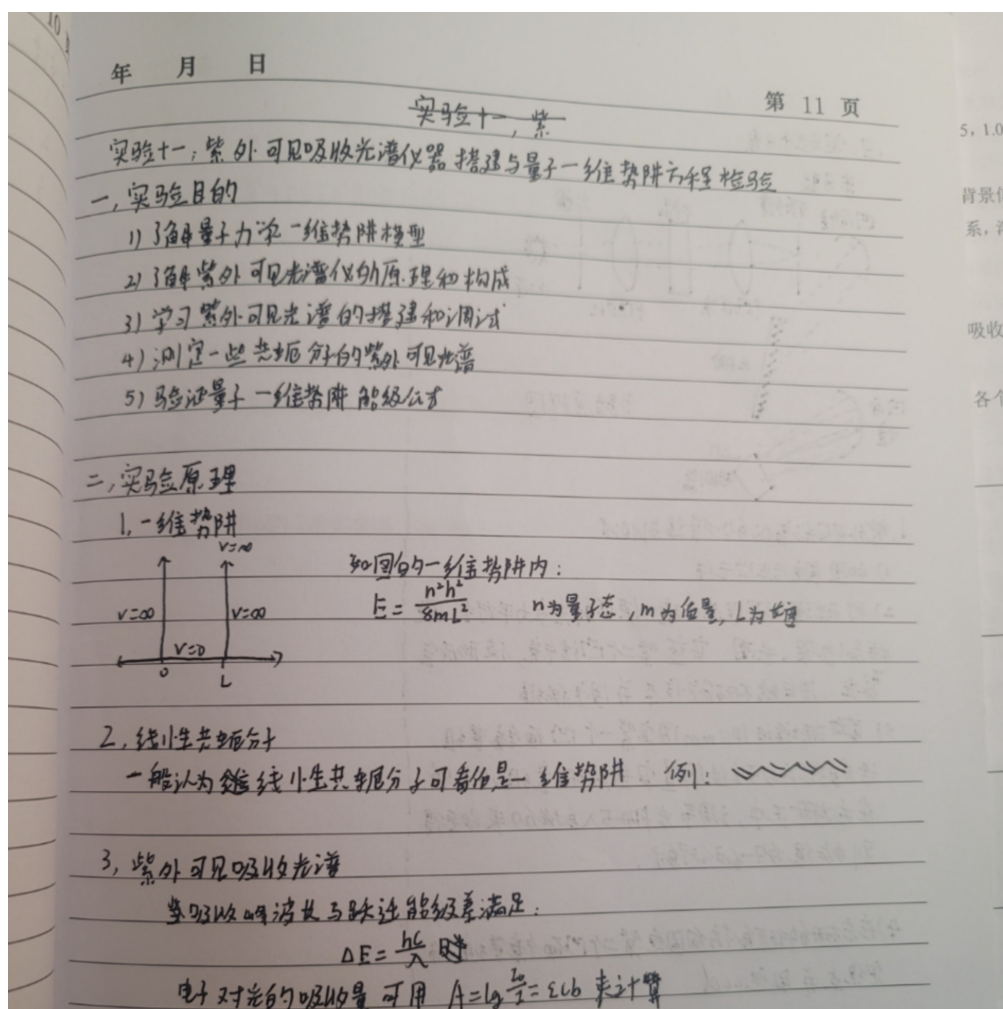 年 月 日
第 11 页
实验十一,紫
实验十一:紫外可见吸收光谱仪器搭建与量子一维势阱方程检验
一,实验目的
1)了解量子力学一维势阱模型
2)了解紫外可见光谱仪的原理和构成
3)学习紫外可见光谱的搭建和调试
4)测定一些共轭分子的紫外可见光谱
5)验证量子一维势阱能级公式
二,实验原理
1,一维势阱
V=∞
V=∞ V=∞
V=0
0 L
如图的一维势阱内:
E= n²h²/8mL² n为量子态,m为质量,L为长度
2,线性共轭分子
一般认为线性共轭分子可看作是一维势阱 例:
3,紫外可见吸收光谱
当吸收峰波长与跃迁能级差满足:
ΔE= hc/λ 时
电子对光的吸收量可用 A=lg I₀/I = εcb 来计算
5,1.0
背景
系,
吸收
各个
10